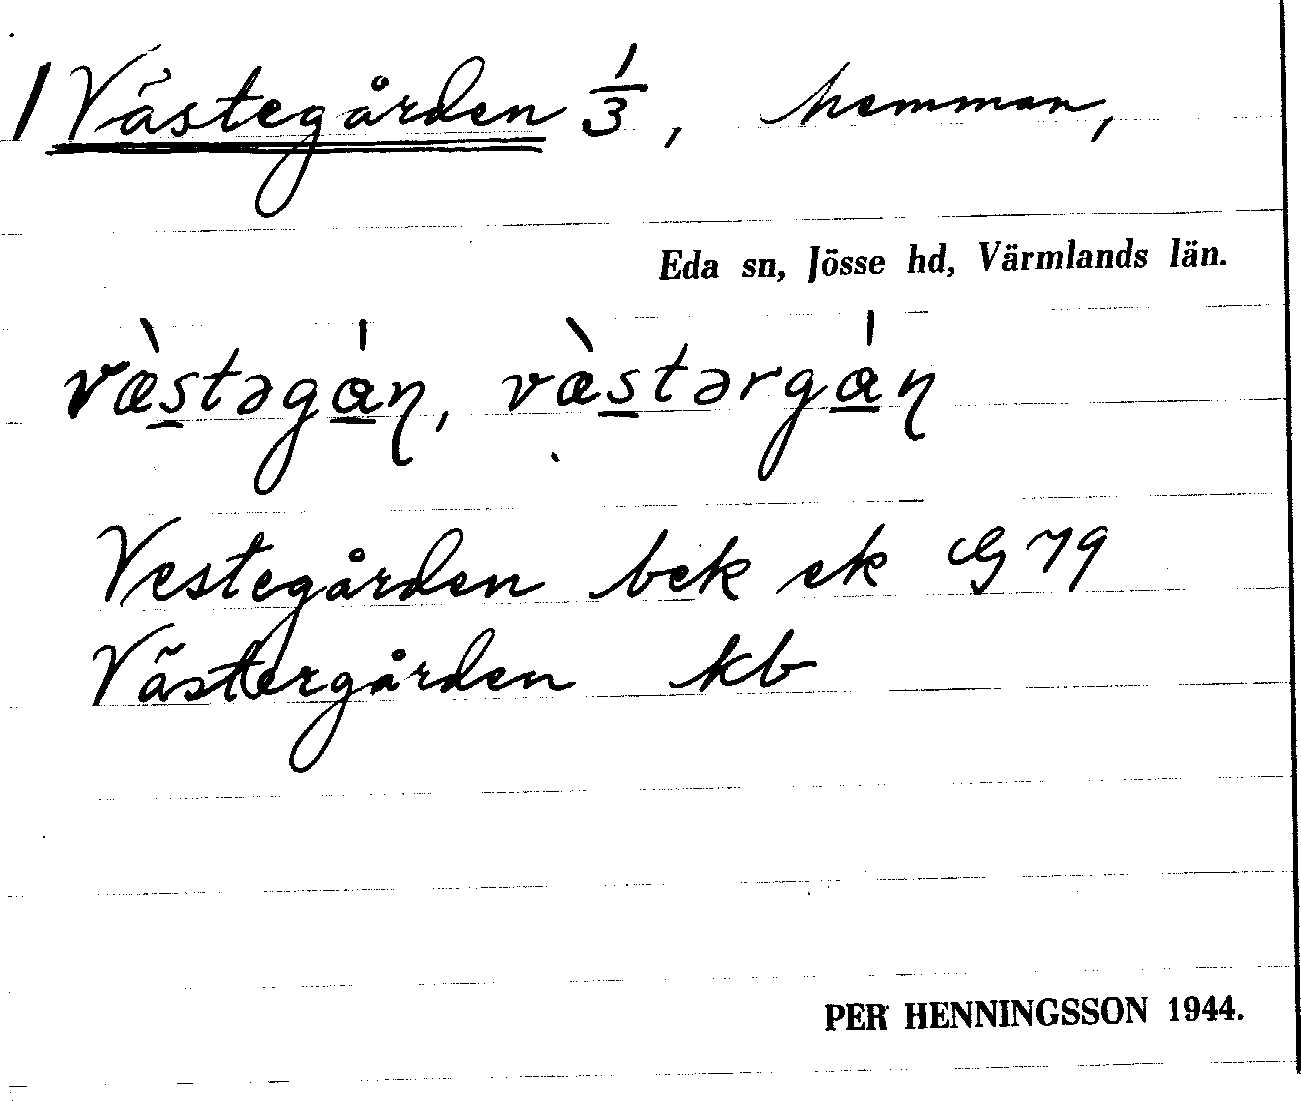 1 Västegården 1/3, hemman,
Eda sn, Jösse hd, Värmlands län.
væ̀stəgɑ́ɳ, væ̀stərgɑ́ɳ
Vestegården bek ek G 79
Västergården kb
PER HENNINGSSON 1944.